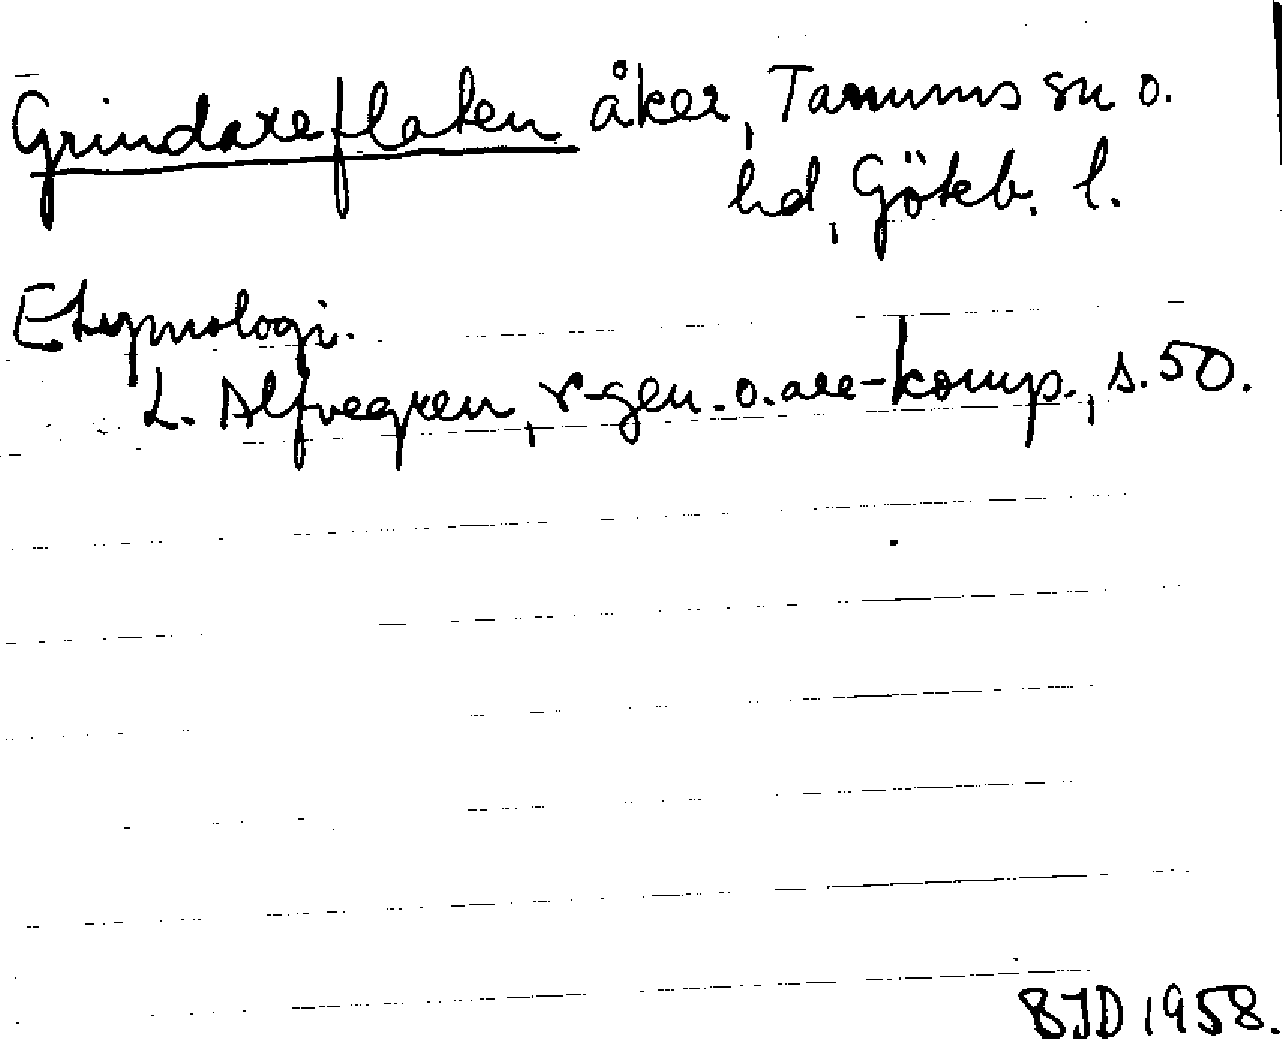 Grindareflaken åker, Tanums sn o.
hd, Göteb. l.
Etymologi.
L. Alfvegren, r-gen. o. are-komp., s. 50.
BJD 1958.